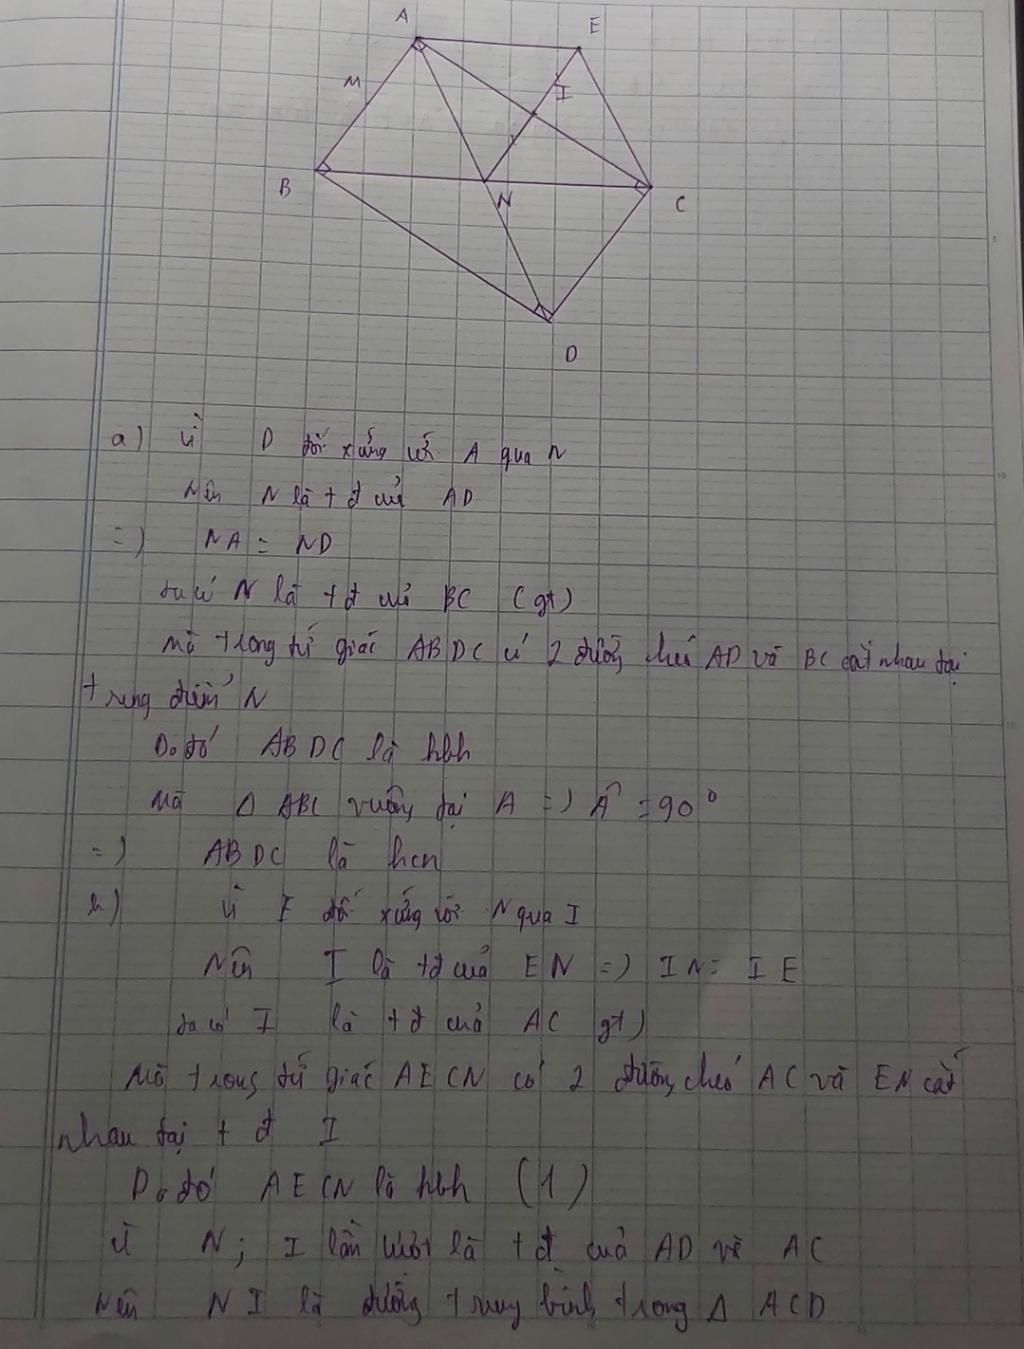 A
E
M
I
B
N
C
D
a) Vì D đối xứng với A qua N
Nên N là tđ của AD
=) NA = ND
ta có N là tđ của BC (gt)
Mà trong tứ giác ABDC có 2 đường chéo AD và BC cắt nhau tại
trung điểm N
Do đó ABDC là hbh
Mà Δ ABC vuông tại A =) Â = 90°
=) ABDC là hcn
b) Vì E đối xứng với N qua I
Nên I là tđ của EN =) IN = IE
ta có I là tđ của AC gt)
Mà trong tứ giác AECN có 2 đường chéo AC và EN cắt
nhau tại tđ I
Do đó AECN là hbh (1)
Vì N; I lần lượt là tđ của AD và AC
Nên NI là đường trung bình trong Δ ACD